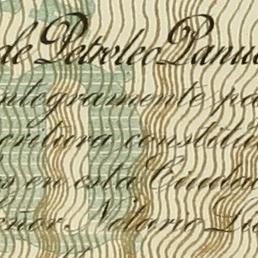 de Petroleo Panuc
ntegramente pa
critura constitu
s en esta Ciudad
eñor Notario Li